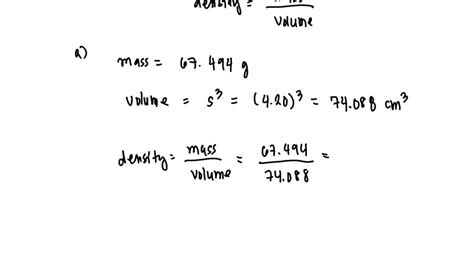 density =
volume
a)
mass = 67.494 g
volume = s³ = (4.20)³ = 74.088 cm³
density = mass / volume = 67.494 / 74.088 =